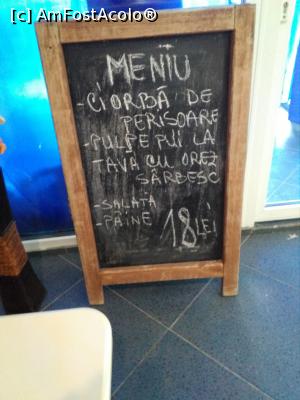 [c] AmFostAcolo®
MENIU
-CIORBĂ DE
PERISOARE
-PULPE PUI LA
TAVA CU OREZ
SÂRBESC
-SALATĂ
-PÂINE
18 LEI